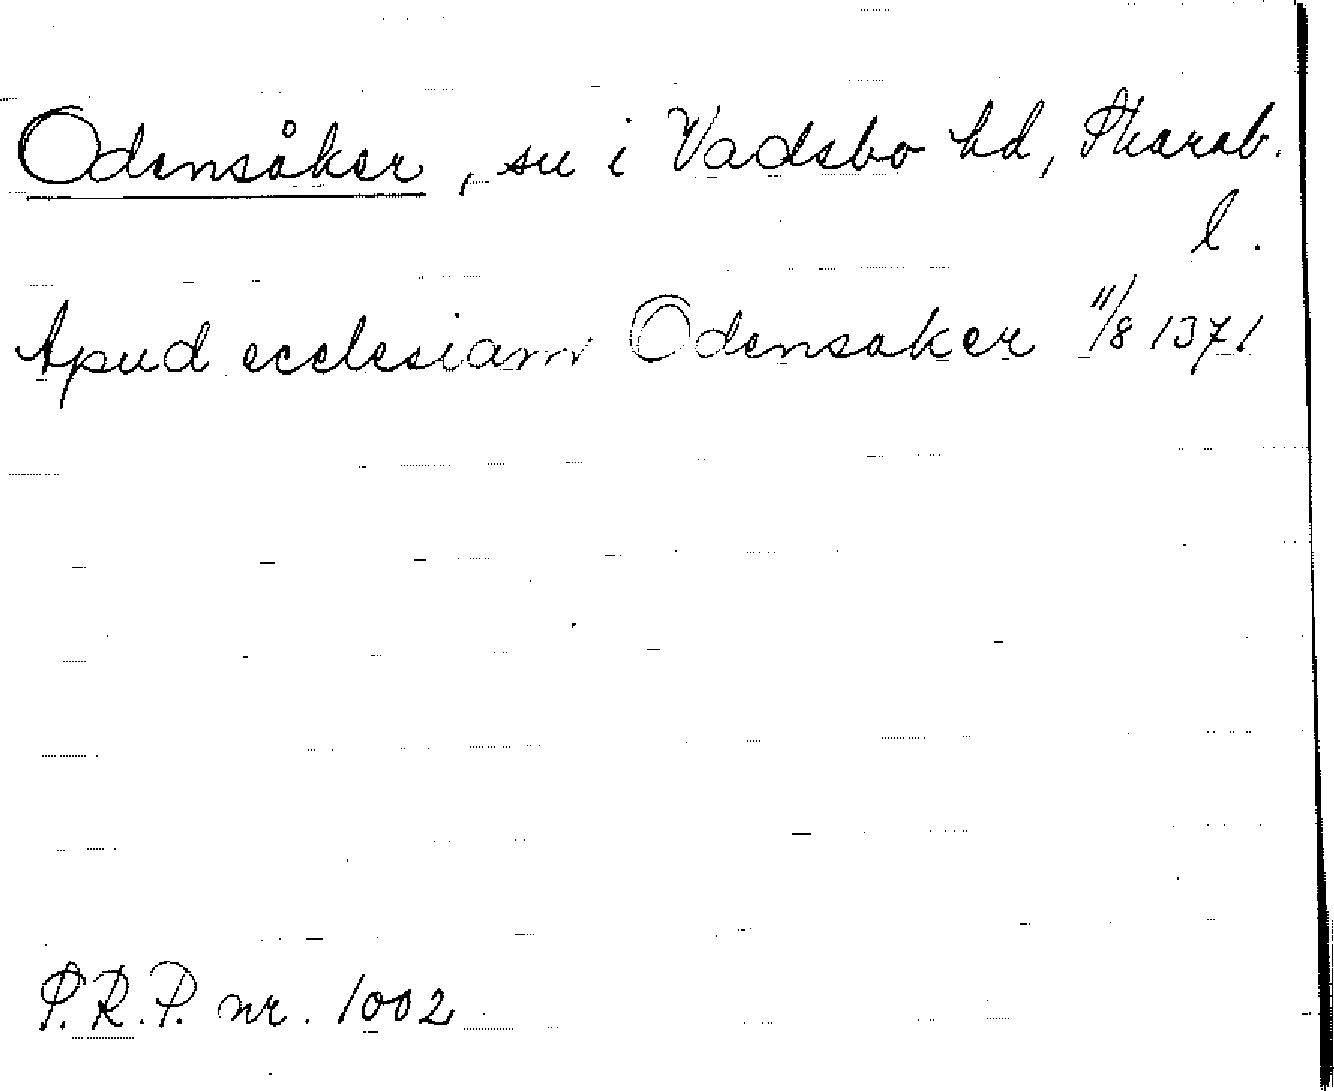 Odensåker, sn i Vadsbo hd, Skarab.
l.
Apud ecclesiam Odensaker 11/8 1371
P.R.P. nr. 1002